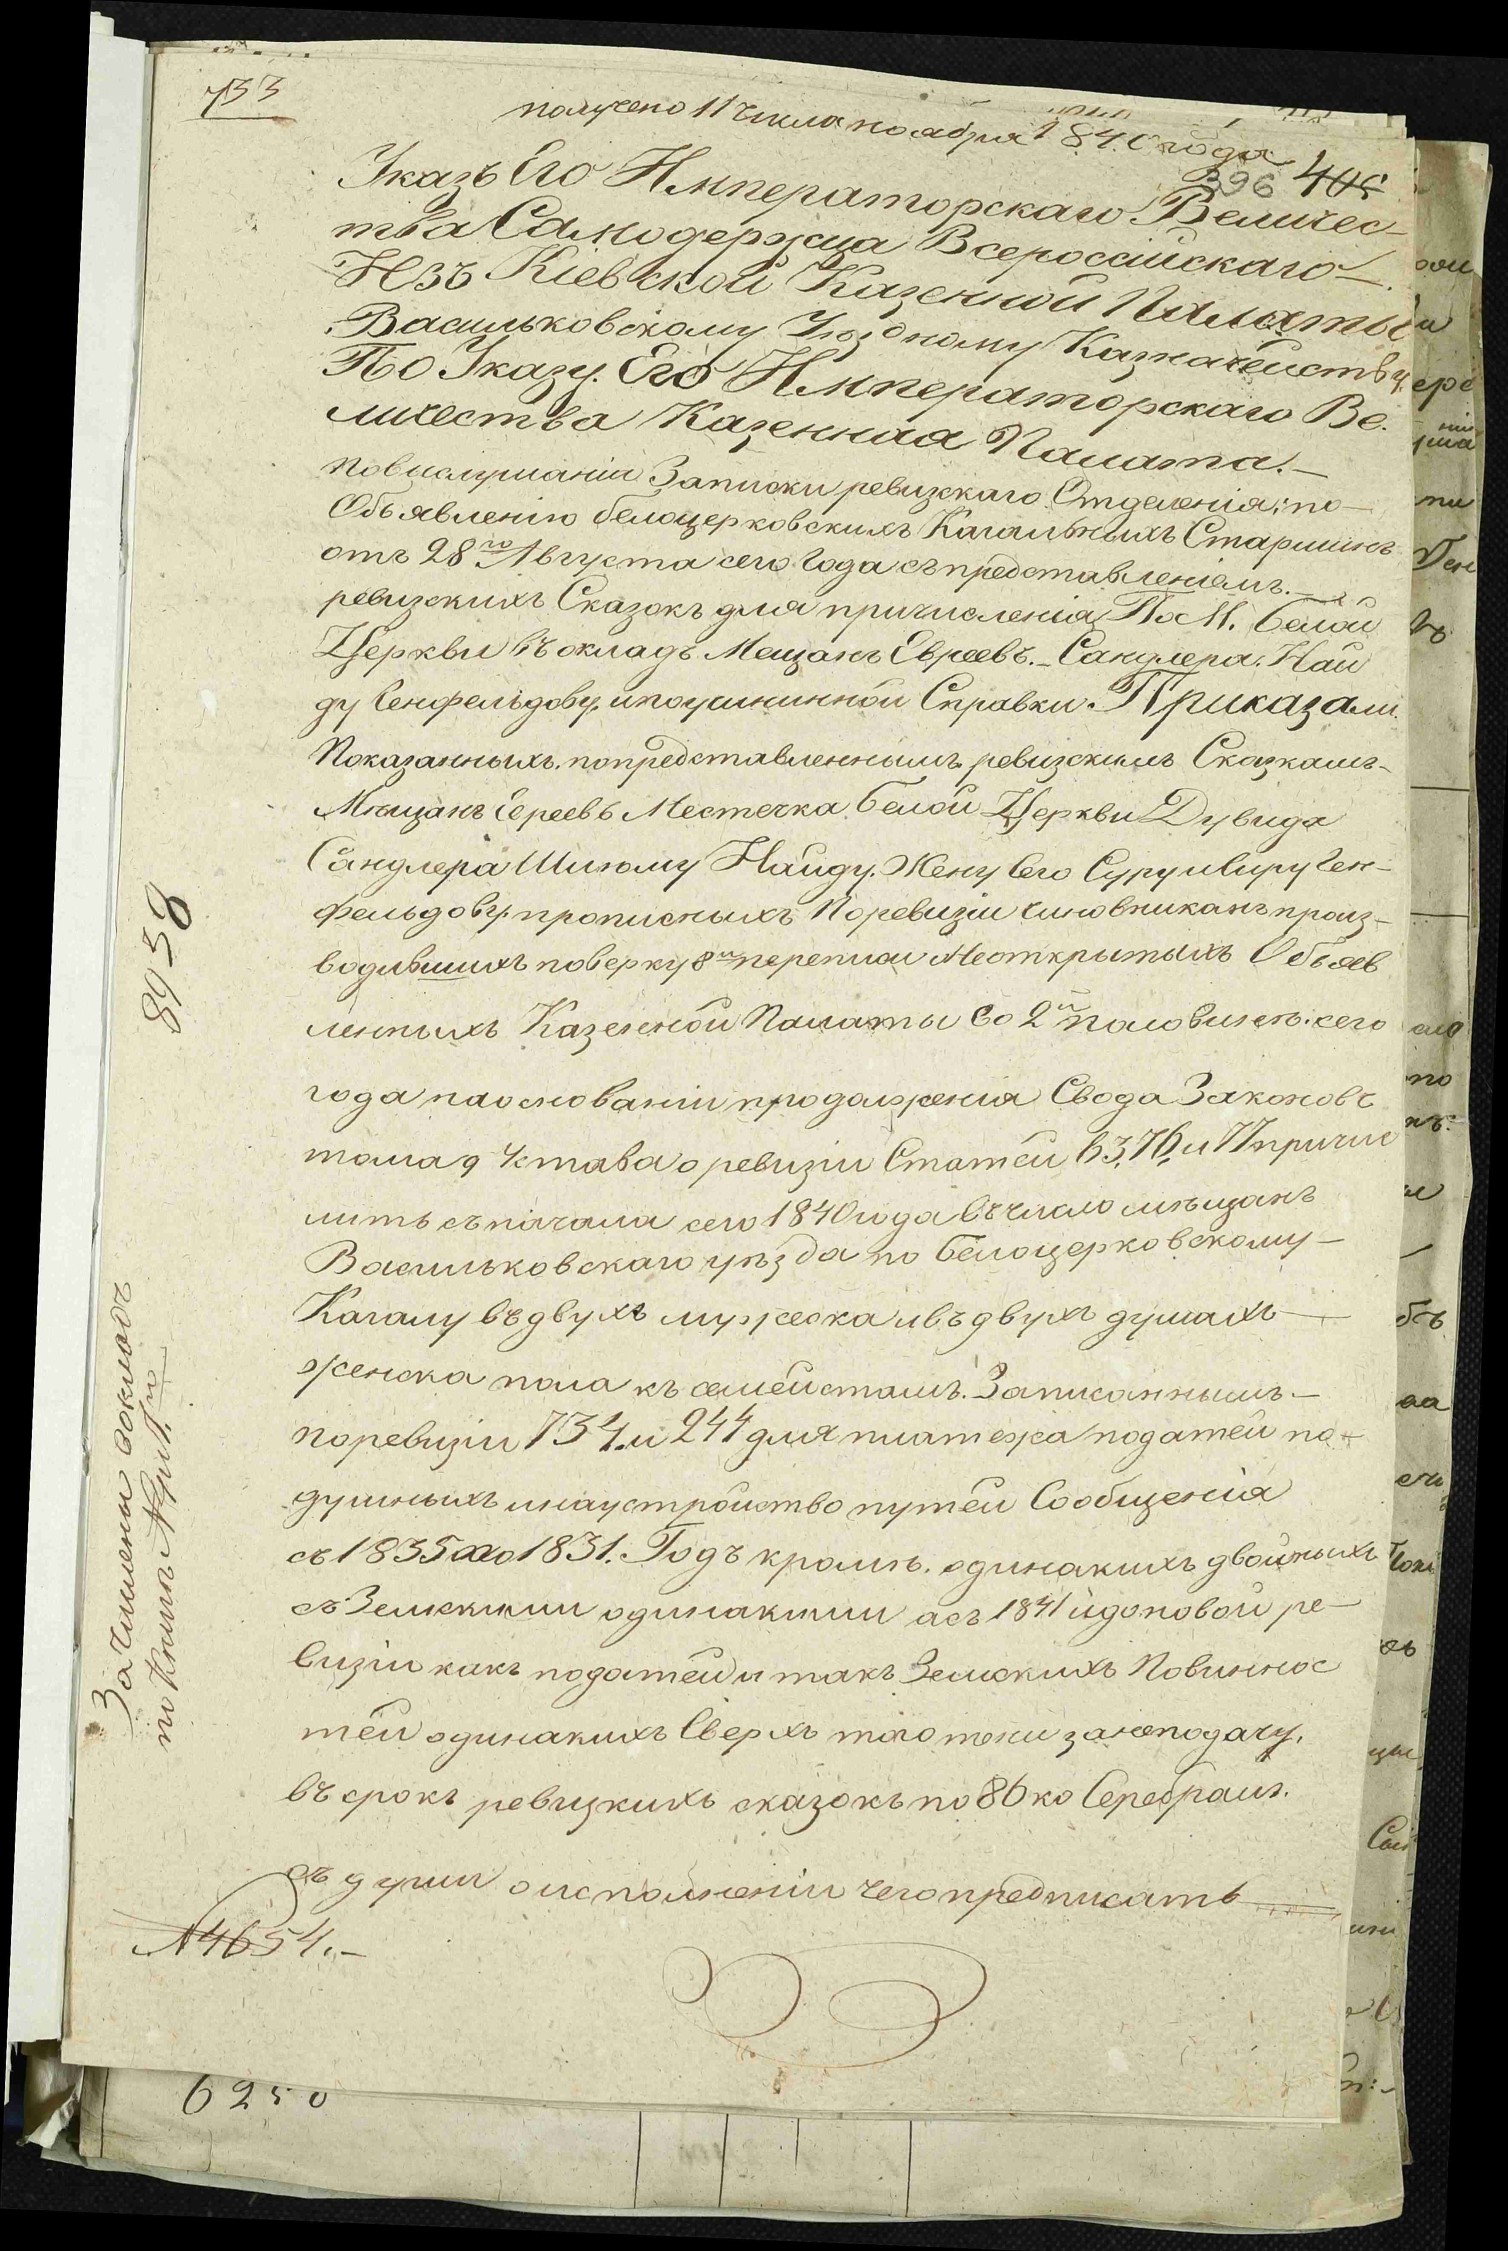 733
получено 11 числа ноября 1840 года
396 405
Указъ Его Императорскаго Величес-
тва Самодержца Всероссійскаго
Изъ Кіевской Казенной Палаты
Васильковскому Уѣздному Казначейству.
По Указу Его Императорскаго Ве-
личества Казенная Палата.
По выслушаніи Записки ревизскаго Отделенія; по
Объявленію белоцерковскихъ Кагальныхъ Старшинъ
отъ 28го Августа сего года съ представленіемъ
ревизскихъ Сказокъ для причисленія По М. Белой
Церкви въ окладъ Мещанъ Евреевъ. Сандлера. Най
ду Генфельдову, и по учиненной Справки. Приказали
Показанныхъ по представленнымъ ревизскимъ Сказкамъ
Мѣщанъ Евреевъ Местечка Белой Церкви Дувида
Сандлера Шлиому Найду. Жену его Суру и Виру Ген-
фельдову, прописныхъ По ревизіи Чиновникамъ произ-
водившихъ поверку 8й переписи Неоткрытыхъ Объяв
ленныхъ Казенной Палаты во 2й половинѣ сего
года на основаніи продолженія Свода Законовъ
тома 9 Устава о ревизіи Статей 63, 76, и 77 причис
лить съ начала сего 1840 года въ число мѣщанъ
Васильковскаго уѣзда по белоцерковскому
Кагалу въ двухъ мужеска и въ двухъ душахъ
женска пола къ семействамъ. Записаннымъ
по ревизіи 734. и 244 для платежа податей по-
душныхъ и на устройство путей Сообщенія
съ 1835 по 1831. Годъ кромѣ одинакихъ двойныхъ
съ Земскими одинакими а съ 1841 и до новой ре-
визіи какъ податей и такъ Земскихъ Повиннос
тей одинакихъ Сверхъ того пени за неподачу,
въ срокъ ревизскихъ сказокъ по 86 ко Серебромъ.
съ души о исполненіи чего предписать
№ 4654.
8958
Зачислены въ окладъ
по книгѣ
6250